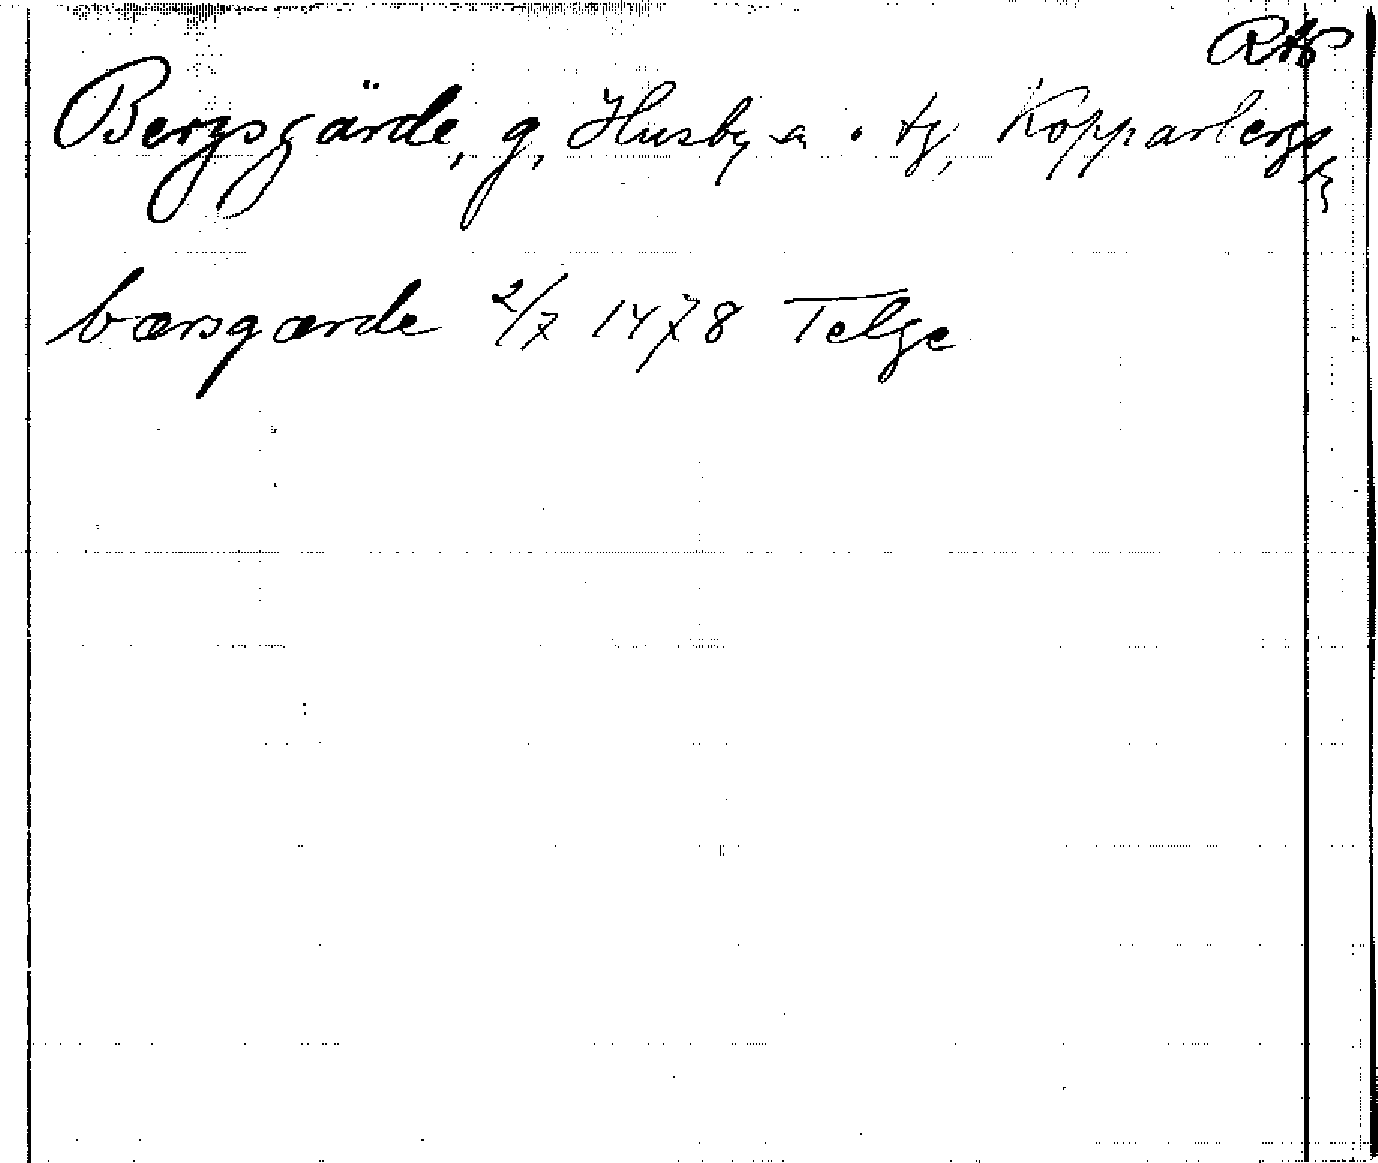 RAP
Bergsgärde, g, Husby s. o. tg, Kopparbergs
l
bærsgærde 2/7 1478 Telge